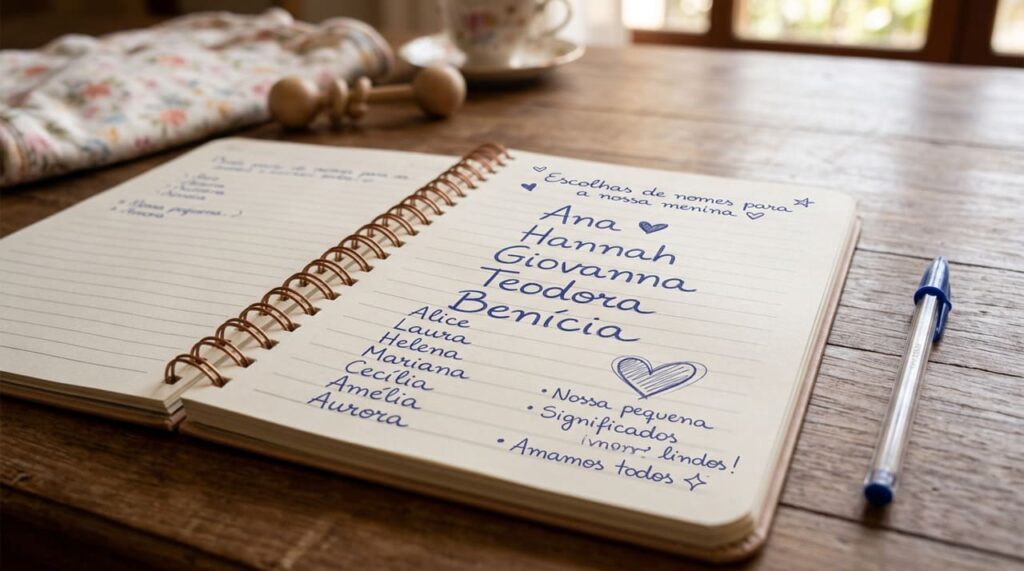 Escolhas de nomes para
a nossa menina
Ana
Hannah
Giovanna
Teodora
Benícia
Alice
Laura
Helena
Mariana
Cecília
Amélia
Aurora
• Nossa pequena
• Significados
lindos!
• Amamos todos